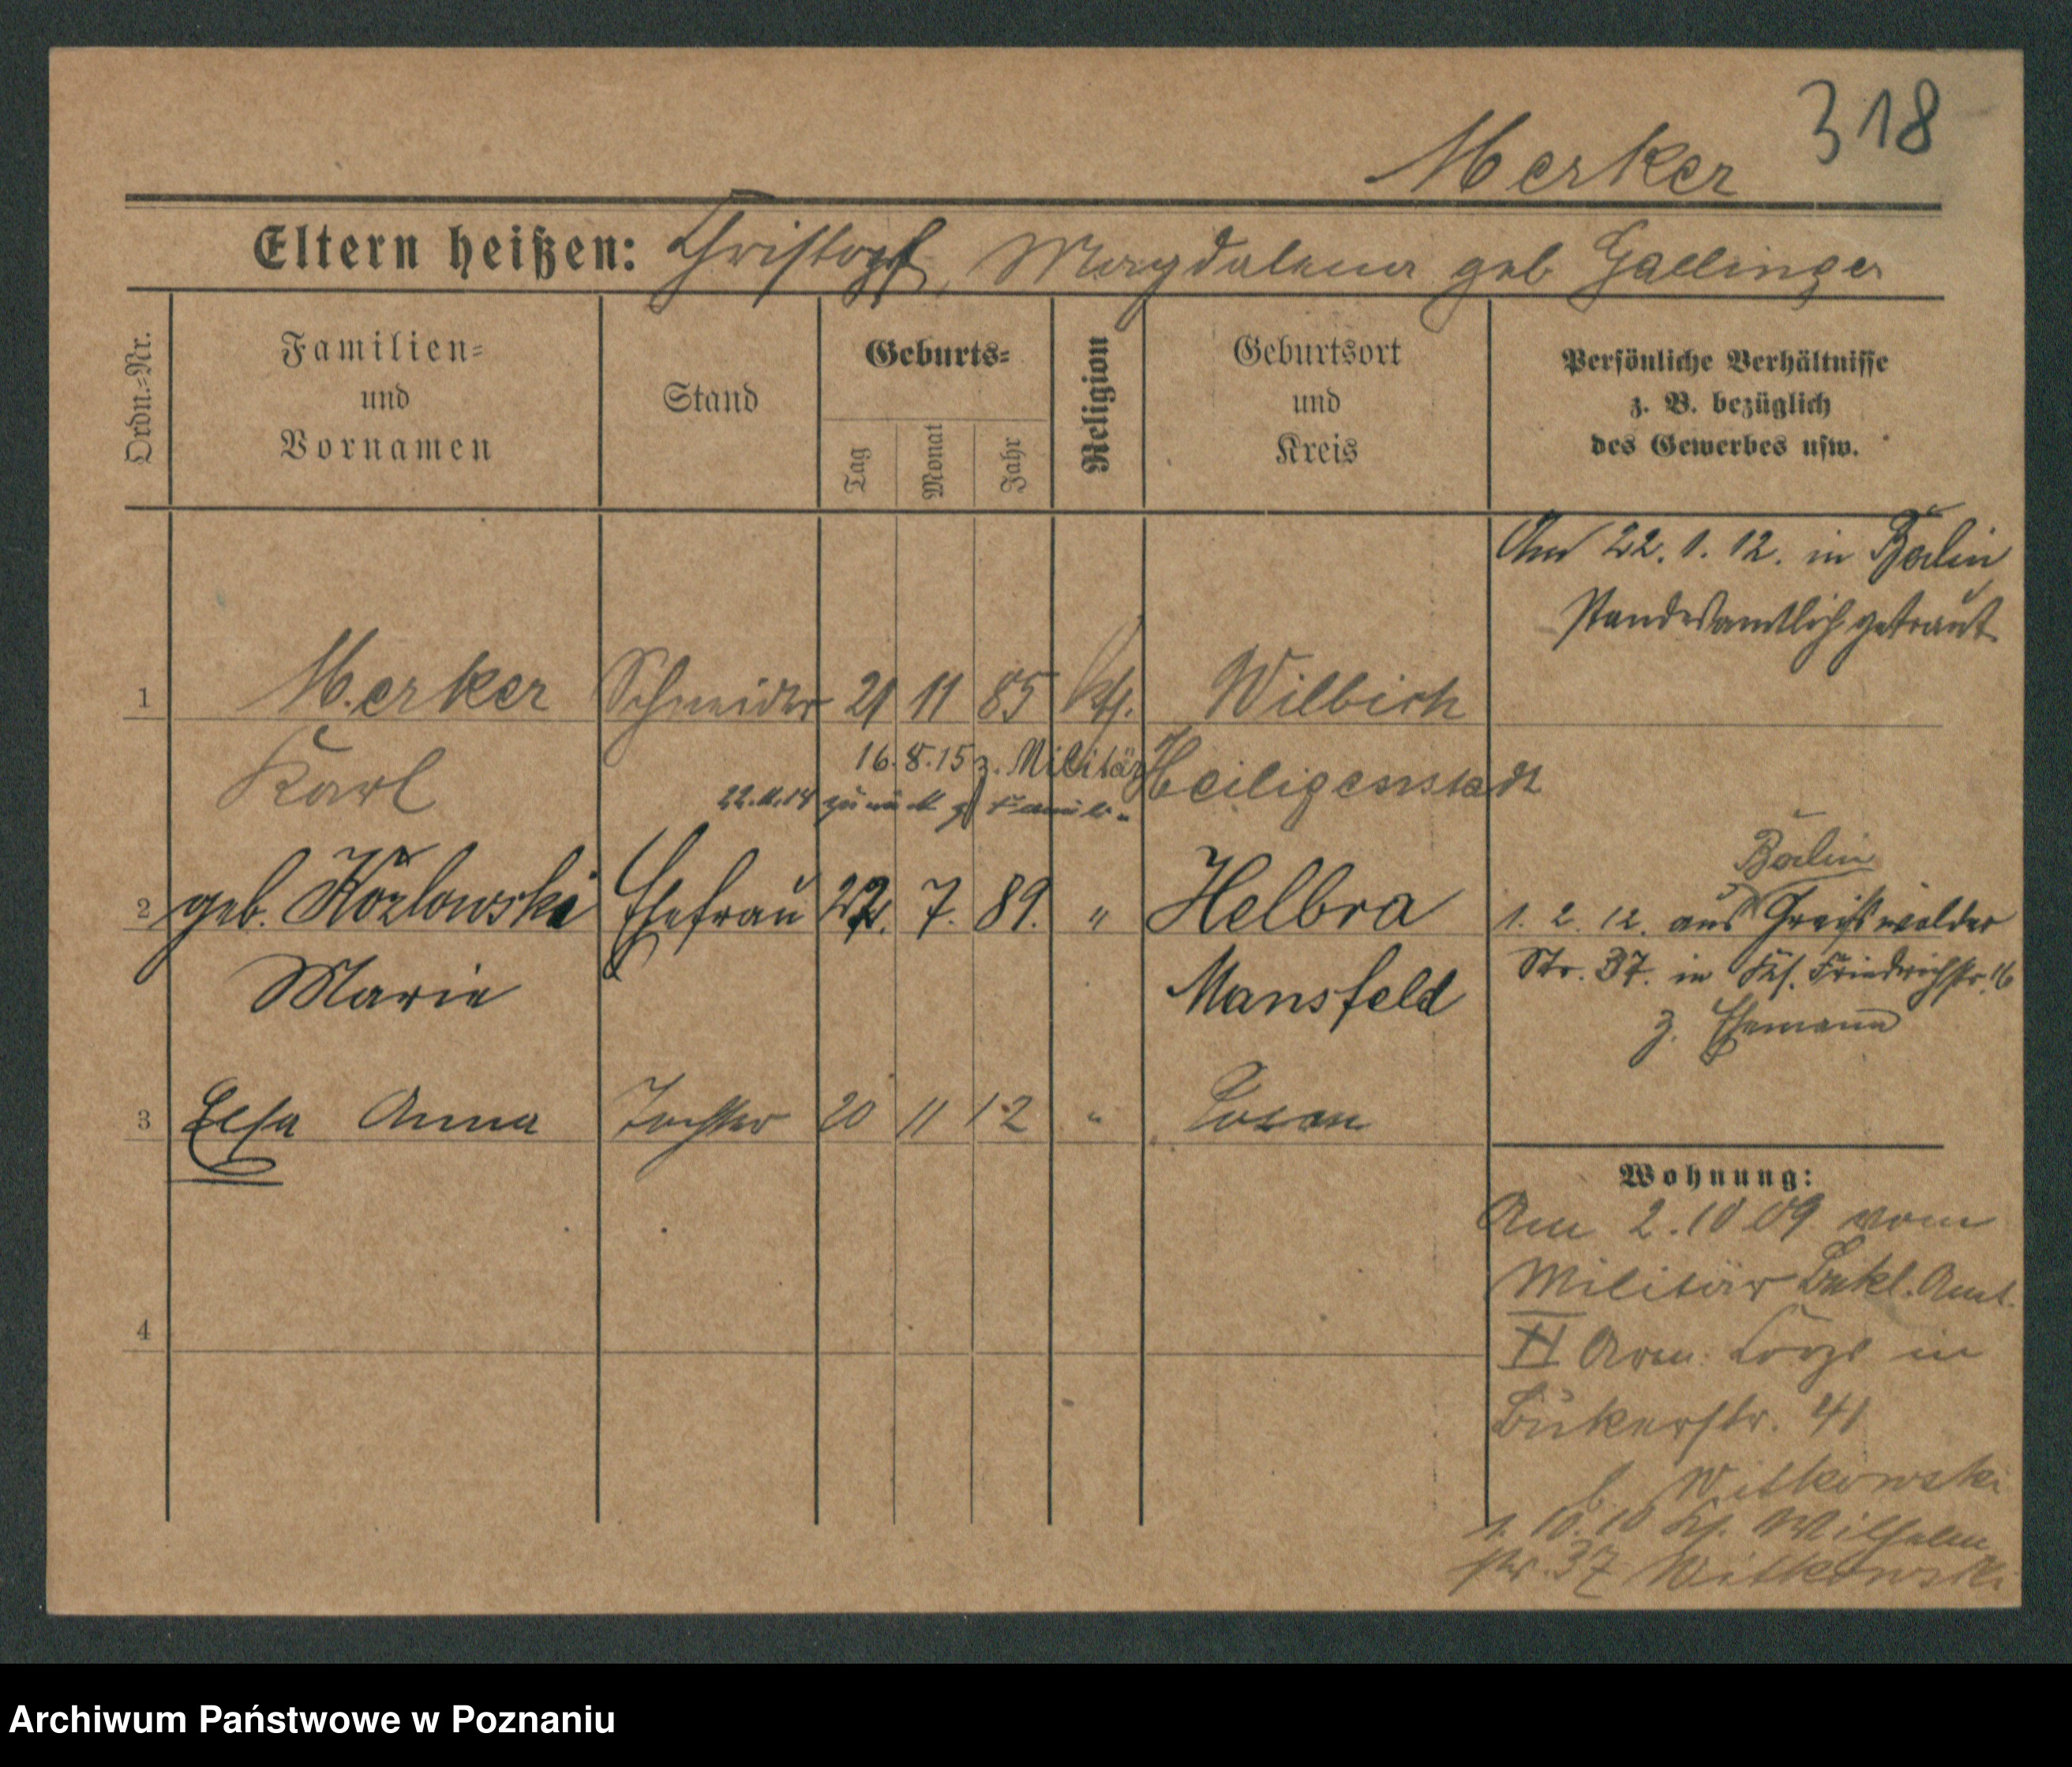 318
Merker
Eltern heißen: Christoph, Magdalena geb Gallinger
Ordn.=Nr.
Familien=
und
Vornamen
Stand
Geburts=
Tag
Monat
Jahr
Religion
Geburtsort
und
Kreis
Persönliche Verhältnisse
z. B. bezüglich
des Gewerbes usw.
Am 22. 1. 12. in Berlin
standesamtlich getraut
1 Merker Schneider 21 11 85 kth. Wilbich
Karl 16. 8. 15 z. Militär Heiligenstadt
22.11.14 zurück z Familie
2 geb. Kozlowski Ehefrau 22. 7. 89. " Helbra
Marie Mansfeld
Berlin
1. 2. 12. aus Greifswalder
Str. 37. in Friedrichstr. 16
z. Ehemann
3 Elsa Anna Tochter 20 11 12 " Posen
4
Wohnung:
Am 2.10 09 vom
Militär Bekl. Amt.
Arm. Corps in
Bukerstr. 41
b Witkowski
1. 10. 10 Wilhelm
str. 37 Witkowski
Archiwum Państwowe w Poznaniu